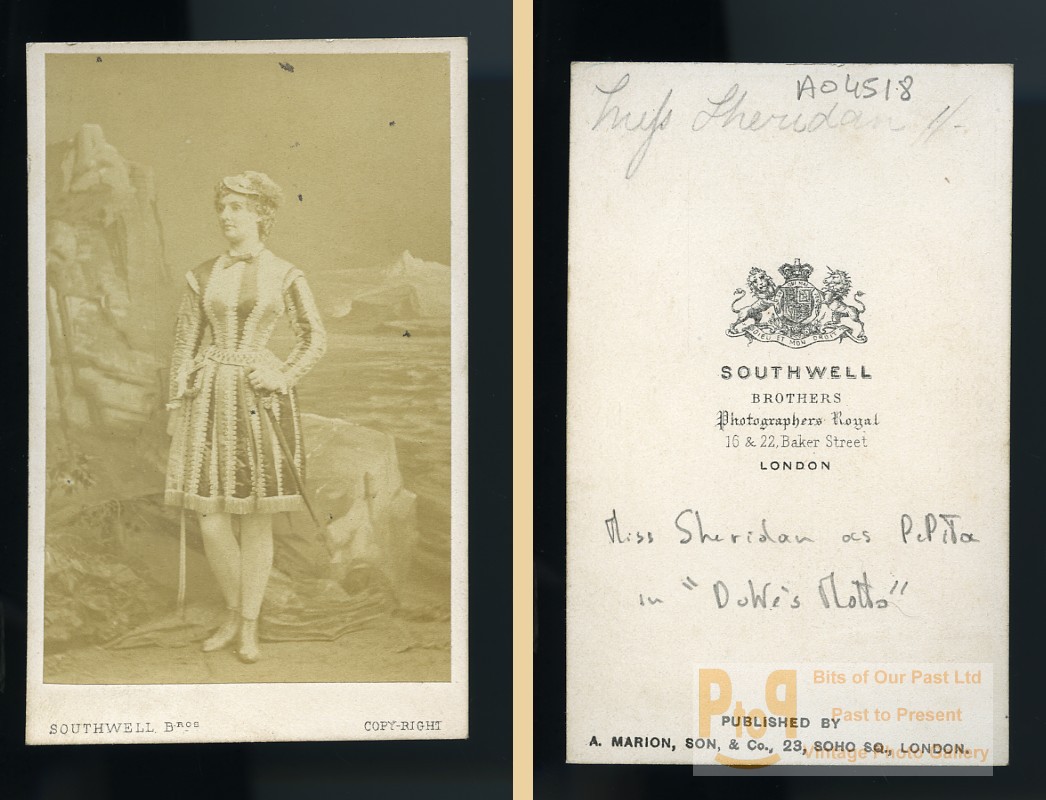 SOUTHWELL Bros
COPY-RIGHT
A04518
Miss Sheridan 1/-
DIEU ET MON DROIT
SOUTHWELL
BROTHERS
Photographers Royal
16 & 22, Baker Street
LONDON
Miss Sheridan as Pepita
in "Duke's Motto"
PtoP
Bits of Our Past Ltd
Past to Present
Vintage Photo Gallery
PUBLISHED BY
A. MARION, SON, & Co., 23, SOHO SQ., LONDON.